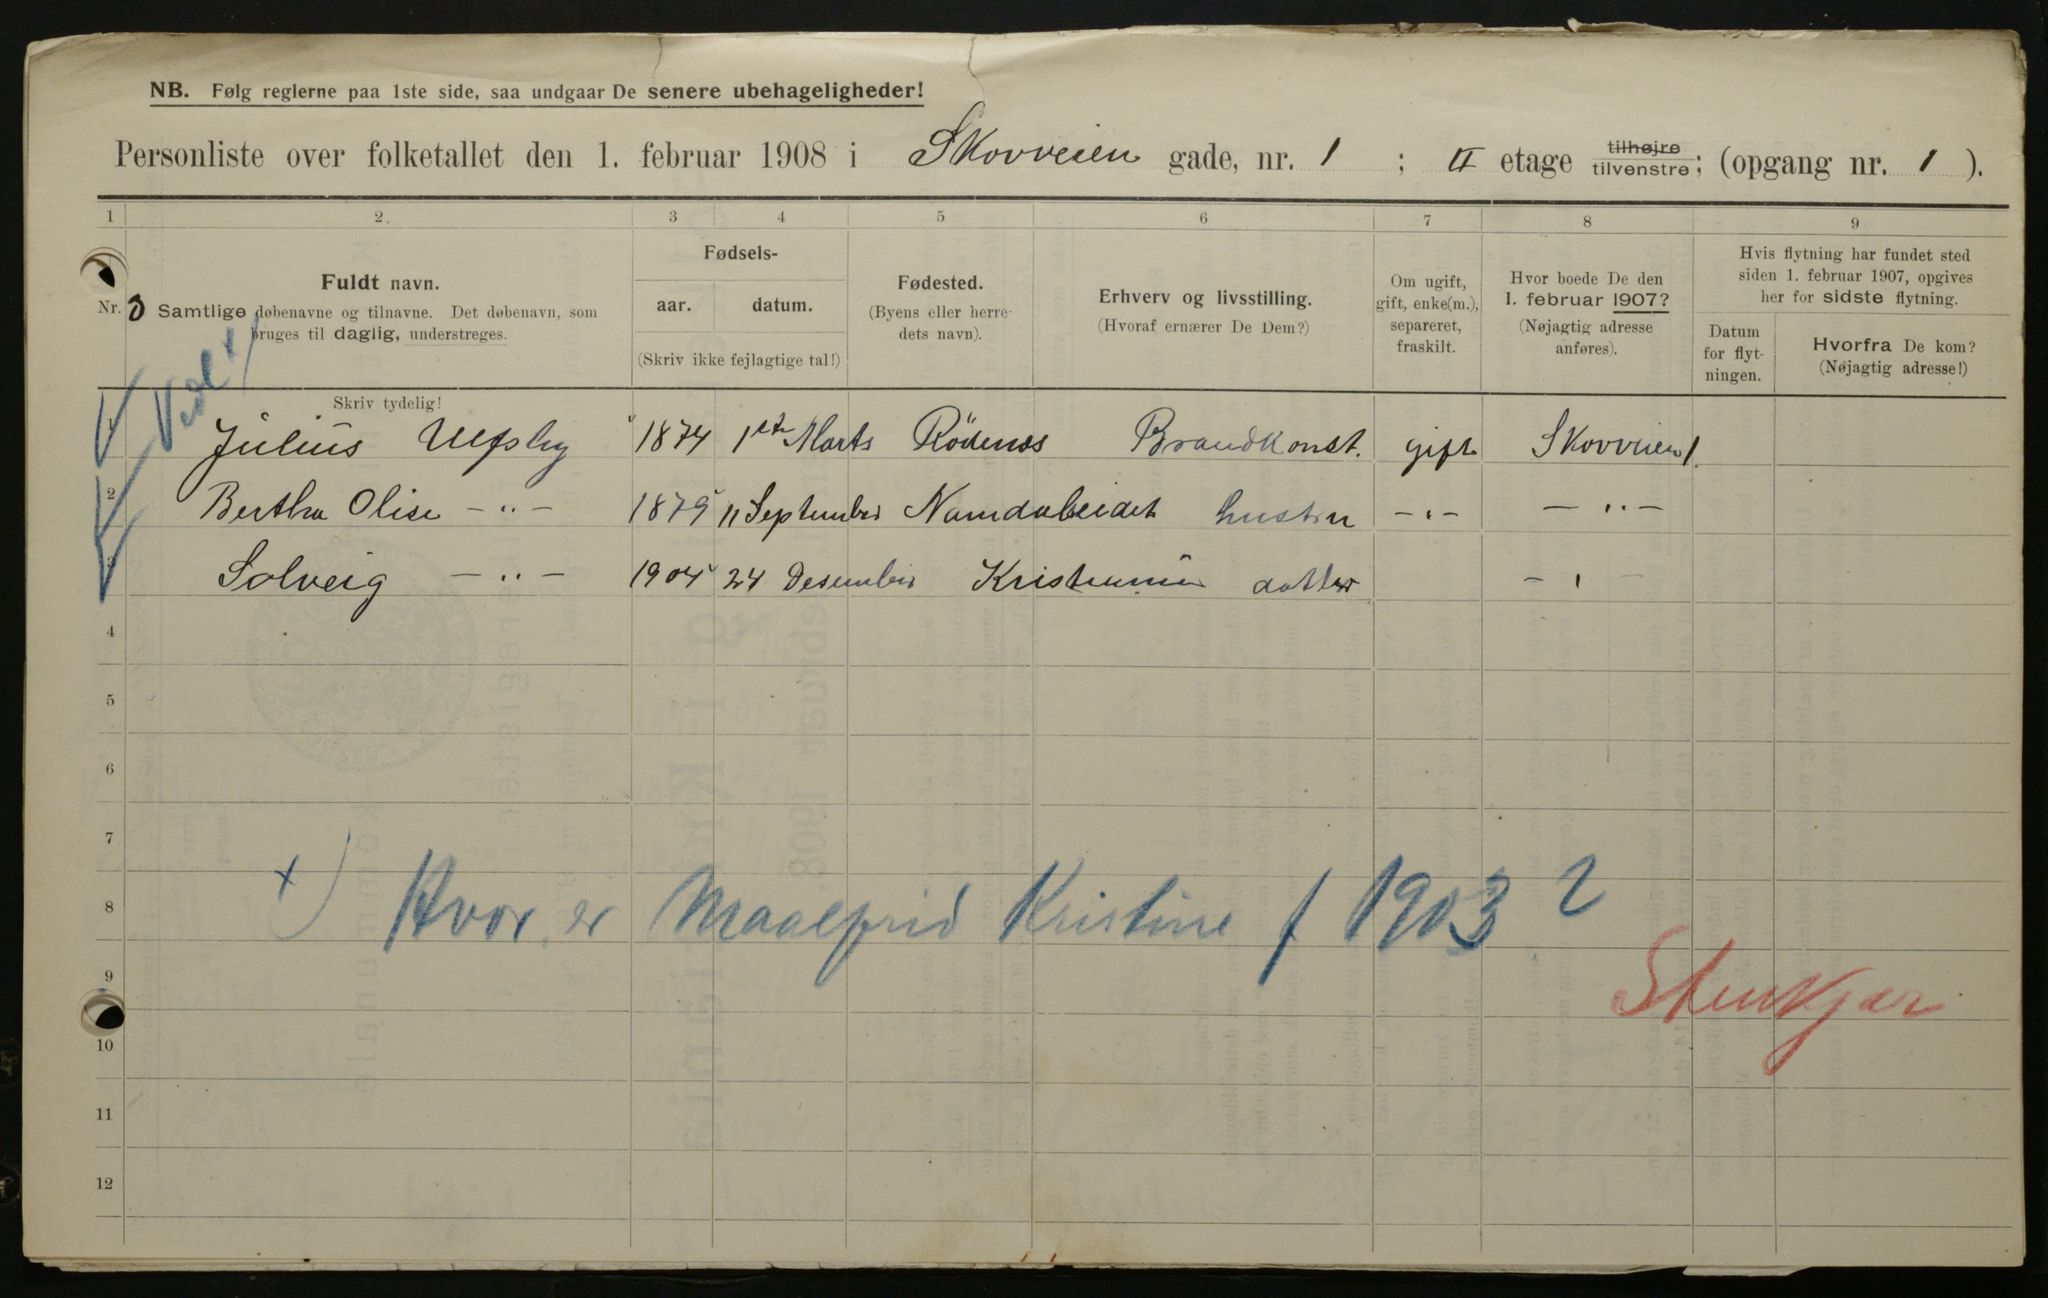 NB. Følg reglerne paa 1ste side, saa undgaar De senere ubehageligheder!
Personliste over folketallet den 1. februar 1908 i Skovveien gade, nr. 1 ; II etage tilhøjre tilvenstre; (opgang nr. 1 ).
1 2. 3 4 5 6 7 8 9
Nr. Fuldt navn. Samtlige døbenavne og tilnavne. Det døbenavn, som bruges til daglig, understreges.
Skriv tydelig!
Fødsels-
aar. datum.
(Skriv ikke fejlagtige tal!)
Fødested.
(Byens eller herredets navn).
Erhverv og livsstilling.
(Hvoraf ernærer De Dem?)
Om ugift, gift, enke(m.), separeret, fraskilt.
Hvor boede De den 1. februar 1907?
(Nøjagtig adresse anføres).
Hvis flytning har fundet sted siden 1. februar 1907, opgives her for sidste flytning.
Datum for flytningen.
Hvorfra De kom?
(Nøjagtig adresse!)
1 Julius Ulfsby 1874 1ste Marts Rödenes Brandkonst. gift Skovveien 1.
2 Bertha Olise -"- 1879 11 September husteu -"- -"-
3 Solveig -"- 1904 24 Desember Kristiania datter -"-
4
5
6
7
8
9
10
11
12
+) Hvor er Maalfrid Kristine f 1903?
Stenkjær